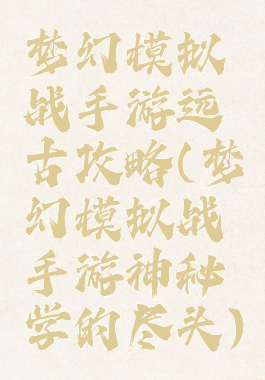 梦幻模拟
战手游远
古攻略(梦
幻模拟战
手游神秘
学的尽头)